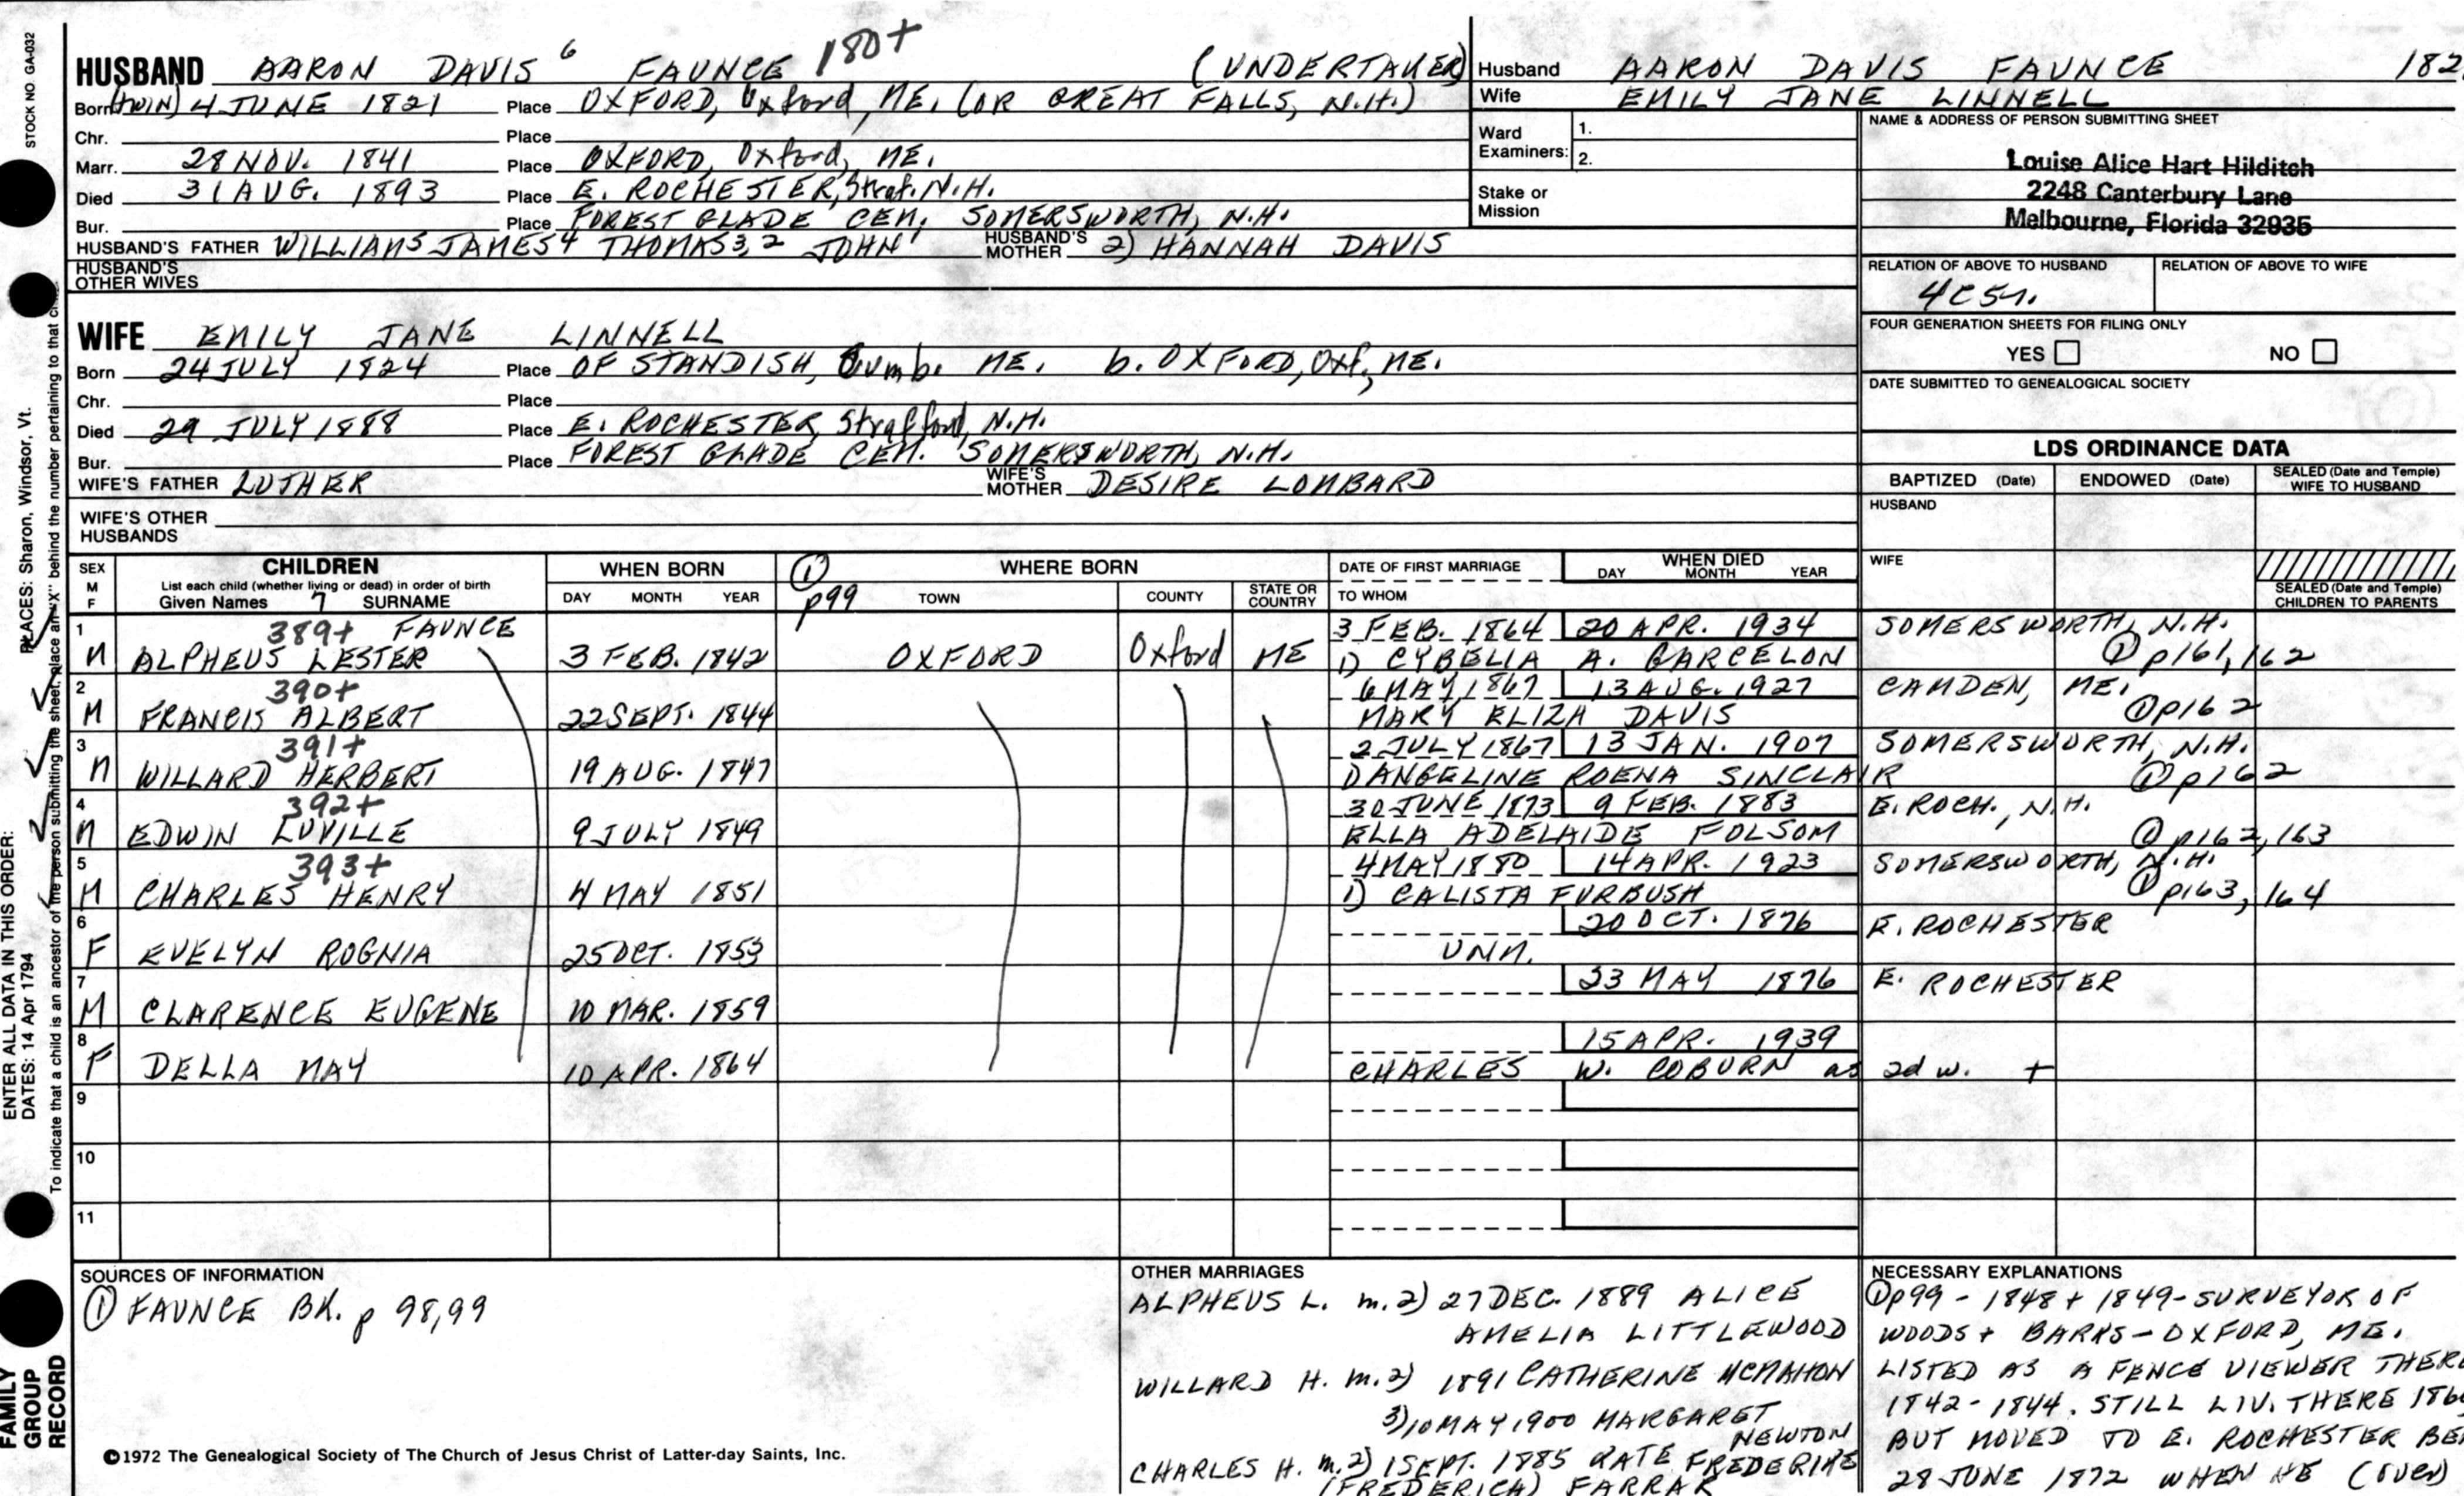 STOCK NO. GA-032
HUSBAND AARON DAVIS 6 FAUNCE 180+ (UNDERTAKER)
Born (TWIN) 4 JUNE 1821 Place OXFORD, Oxford, ME. (OR GREAT FALLS, N.H.)
Chr. Place
Marr. 28 NOV. 1841 Place OXFORD, Oxford, ME.
Died 31 AUG. 1893 Place E. ROCHESTER, Straf. N.H.
Bur. Place FOREST GLADE CEM. SOMERSWORTH, N.H.
HUSBAND'S FATHER WILLIAM5 JAMES4 THOMAS3,2 JOHN1 HUSBAND'S MOTHER 2) HANNAH DAVIS
HUSBAND'S OTHER WIVES
WIFE EMILY JANE LINNELL
Born 24 JULY 1824 Place OF STANDISH, Cumb. ME. b. OXFORD, Oxf, ME.
Chr. Place
Died 29 JULY 1888 Place E. ROCHESTER, Strafford, N.H.
Bur. Place FOREST GLADE CEM. SOMERSWORTH, N.H.
WIFE'S FATHER LUTHER WIFE'S MOTHER DESIRE LOMBARD
WIFE'S OTHER HUSBANDS
Husband AARON DAVIS FAUNCE 182
Wife EMILY JANE LINNELL
Ward Examiners: 1.
2.
Stake or Mission
NAME & ADDRESS OF PERSON SUBMITTING SHEET
Louise Alice Hart Hilditch
2248 Canterbury Lane
Melbourne, Florida 32935
RELATION OF ABOVE TO HUSBAND RELATION OF ABOVE TO WIFE
4C5r.
FOUR GENERATION SHEETS FOR FILING ONLY
YES NO
DATE SUBMITTED TO GENEALOGICAL SOCIETY
LDS ORDINANCE DATA
BAPTIZED (Date) ENDOWED (Date) SEALED (Date and Temple) WIFE TO HUSBAND
HUSBAND
WIFE
SEALED (Date and Temple) CHILDREN TO PARENTS
SEX M F CHILDREN WHEN BORN ① p99 WHERE BORN DATE OF FIRST MARRIAGE WHEN DIED
List each child (whether living or dead) in order of birth
Given Names 7 SURNAME DAY MONTH YEAR TOWN COUNTY STATE OR COUNTRY TO WHOM DAY MONTH YEAR
1 389+ FAUNCE 3 FEB. 1864 20 APR. 1934 SOMERSWORTH, N.H.
M ALPHEUS LESTER 3 FEB. 1842 OXFORD Oxford ME 1) CYBELIA A. GARCELON ① p161,162
2 390+ 6 MAY 1867 13 AUG. 1927 CAMDEN, ME.
M FRANCIS ALBERT 22 SEPT. 1844 MARY ELIZA DAVIS ① p162
3 391+ 2 JULY 1867 13 JAN. 1907 SOMERSWORTH, N.H.
M WILLARD HERBERT 19 AUG. 1847 1) ANGELINE ROENA SINCLAIR ① p162
4 392+ 30 JUNE 1873 9 FEB. 1883 E. ROCH., N.H.
M EDWIN LUVILLE 9 JULY 1849 ELLA ADELAIDE FOLSOM ① p162,163
5 393+ 4 MAY 1880 14 APR. 1923 SOMERSWORTH, N.H.
M CHARLES HENRY 4 MAY 1851 1) CALISTA FURBUSH ① p163,164
6 20 OCT. 1876 E. ROCHESTER
F EVELYN ROGNIA 25 OCT. 1853 UNM.
7 23 MAY 1876 E. ROCHESTER
M CLARENCE EUGENE 10 MAR. 1859
8 15 APR. 1939
F DELLA MAY 10 APR. 1864 CHARLES W. COBURN as 2d w. +
9
10
11
SOURCES OF INFORMATION
① FAUNCE BK. p 98,99
©1972 The Genealogical Society of The Church of Jesus Christ of Latter-day Saints, Inc.
OTHER MARRIAGES
ALPHEUS L. m. 2) 27 DEC. 1889 ALICE
AMELIA LITTLEWOOD
WILLARD H. m. 2) 1891 CATHERINE MCMAHON
3) 10 MAY 1900 MARGARET
NEWTON
CHARLES H. m. 2) 1 SEPT. 1885 KATE FREDERIKE
(FREDERICA) FARRAR
NECESSARY EXPLANATIONS
① p99 - 1848 + 1849 - SURVEYOR OF
WOODS + BARKS - OXFORD, ME.
LISTED AS A FENCE VIEWER THERE
1842-1844. STILL LIV. THERE 186
BUT MOVED TO E. ROCHESTER BEF
28 JUNE 1872 WHEN HE (over)
ENTER ALL DATA IN THIS ORDER:
DATES: 14 Apr 1794 PLACES: Sharon, Windsor, Vt.
To indicate that a child is an ancestor of the person submitting the sheet, place an "X" behind the number pertaining to that
FAMILY GROUP RECORD